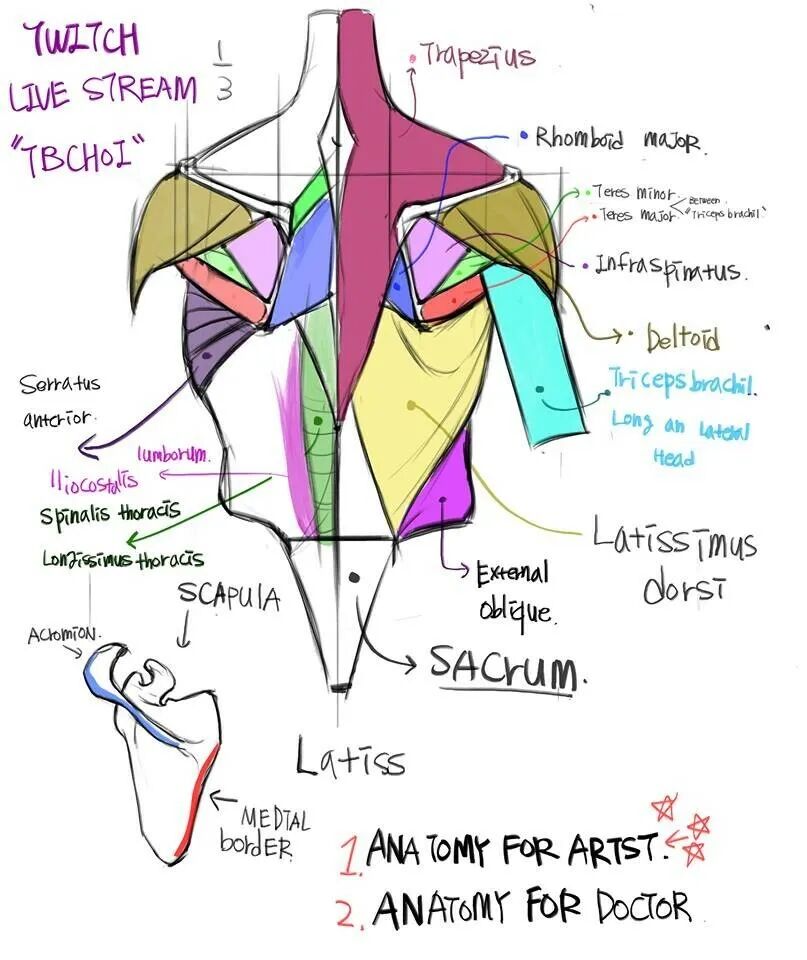 TWITCH
LIVE STREAM
"TBCHOI"
1
3
Trapezius
Rhomboid major.
Teres minor.
Teres major.
Between
"Triceps brachil"
Infraspinatus.
Deltoid
Triceps brachil.
Long an Lateral
Head
Serratus
anterior.
lumborum.
Iliocostalis
Spinalis thoracis
Longissimus thoracis
Latissimus
dorsi
External
oblique.
SCAPULA
Acromion.
SACrum.
Latiss
MEDIAL
border
1. ANATOMY FOR ARTST.
2. ANATOMY FOR DOCTOR